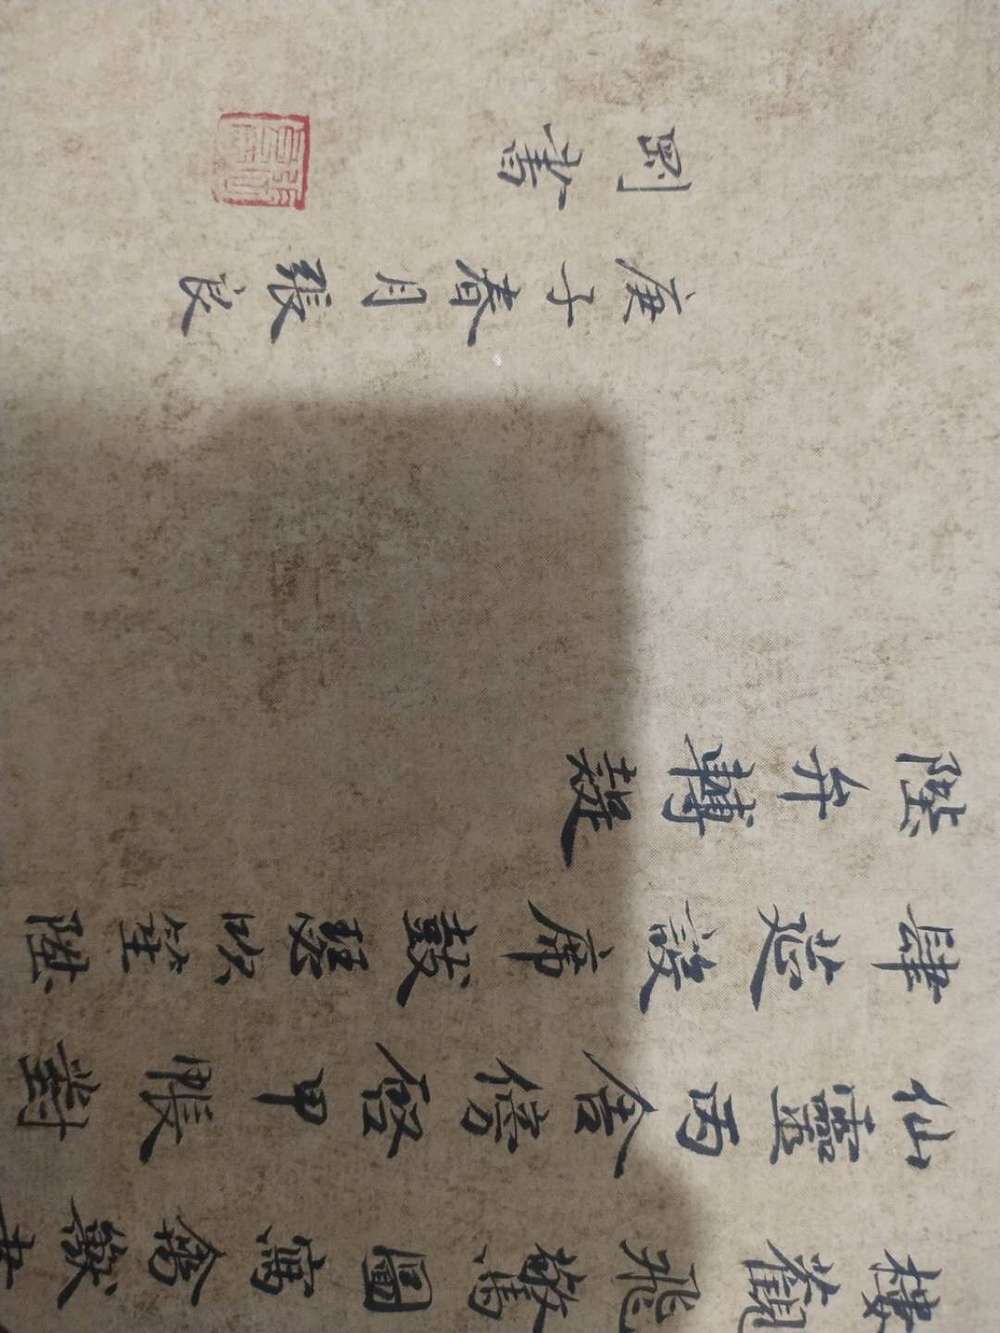 樓觀飛驚圖寫禽獸畫
仙靈丙舍傍啓甲帳對
肆筵設席鼓瑟吹笙陞
陛弁轉疑
庚子春月張良
剛書